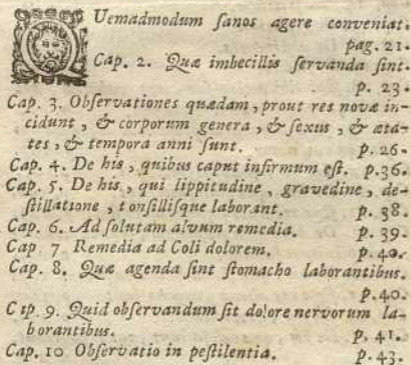 QUemadmodum ſanos agere conveniat.
pag. 21.
Cap. 2. Quæ imbecillis ſervanda ſint.
p. 23.
Cap. 3. Obſervationes quædam, prout res novæ in-
cidunt, & corporum genera, & ſexus, & æta-
tes, & tempora anni ſunt. p. 26.
Cap. 4. De his, quibus caput infirmum eſt. p.36.
Cap. 5. De his, qui lippitudine, gravedine, de-
ſtillatione, tonſilliſque laborant. p. 38.
Cap. 6. Ad ſolutam alvum remedia. p. 39.
Cap 7 Remedia ad Coli dolorem. p.40.
Cap. 8. Quæ agenda ſint ſtomacho laborantibus.
p.40.
C ap. 9. Quid obſervandum ſit dolore nervorum la-
borantibus. p. 41.
Cap. 10 Obſervatio in peſtilentia. p.43.